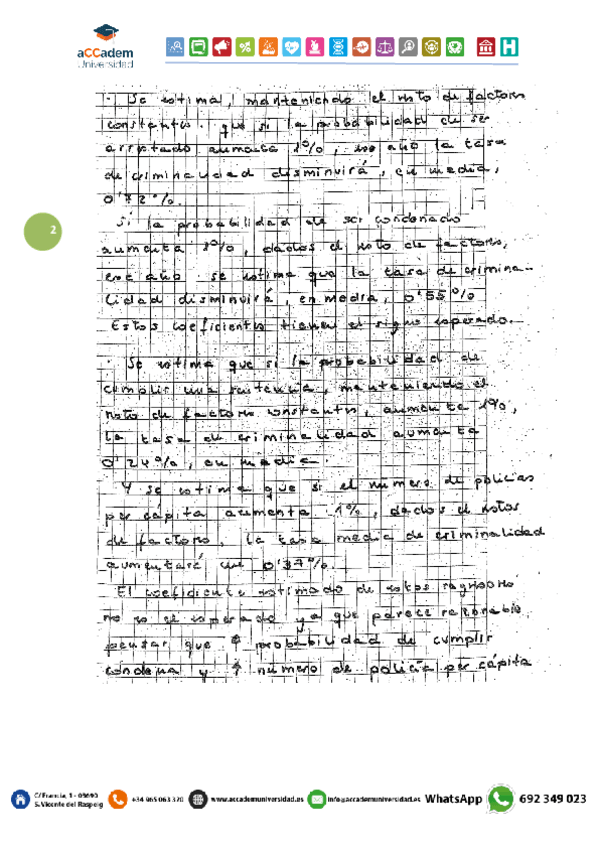 aCCadem
Universidad
· Se estima, manteniendo el resto de factores
constantes, que si la probabilidad de ser
arrestado aumenta 1%, ese año la tasa
de criminalidad disminuirá, en media,
0'72%.
Si la probabilidad de ser condenado
2
aumenta 1%, dados el resto de factores,
ese año se estima que la tasa de crimina-
lidad disminuirá, en media, 0'55%
Estos coeficientes tienen el signo esperado.
· Se estima que si la probabilidad de
cumplir una sentencia, manteniendo el
resto de factores constantes, aumenta 1%,
la tasa de criminalidad aumenta
0'24%, en media.
Y se estima que si el número de policías
per cápita aumenta 1%, dados el resto
de factores, la tasa media de criminalidad
aumentará un 0'37%.
El coeficiente estimado de estos regresores
no es el esperado ya que parece razonable
pensar que ↑ probabilidad de cumplir
condena y ↑ número de policía per cápita
C/ Francia, 1 - 03690
S. Vicente del Raspeig
+34 965 063 320
www.accademuniversidad.es
info@accademuniversidad.es
WhatsApp
692 349 023